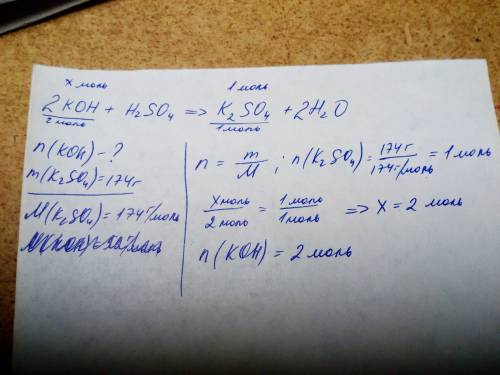 x моль 1 моль
2KOH + H₂SO₄ => K₂SO₄ + 2H₂O
2 моль 1 моль
n(KOH) - ?
m(K₂SO₄) = 174 г
M(K₂SO₄) = 174 г/моль
n = m/M ; n(K₂SO₄) = 174 г / 174 г/моль = 1 моль
x моль / 2 моль = 1 моль / 1 моль => x = 2 моль
n(KOH) = 2 моль